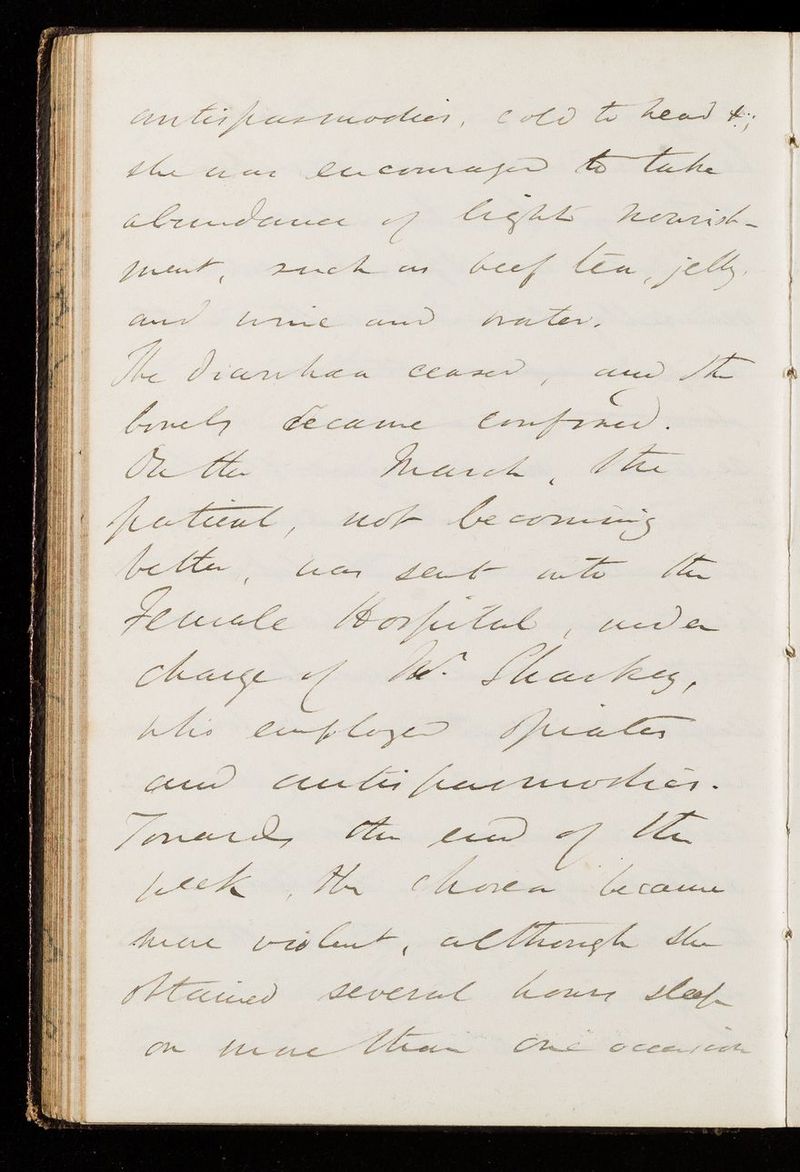 antispasmodics, cold to head &c;
she was encouraged to take
abundance of light nourish-
ment, such as beef tea, jelly,
and wine and water.
The diarrhœa ceased, and the
bowels became confined.
On the March, the
patient, not becoming
better, was sent into the
Female Hospital, under
charge of Dr. Sharkey,
who employed opiates
and antispasmodics.
Towards the end of the
week, the chorea became
more violent, although she
obtained several hours sleep
on more than one occasion